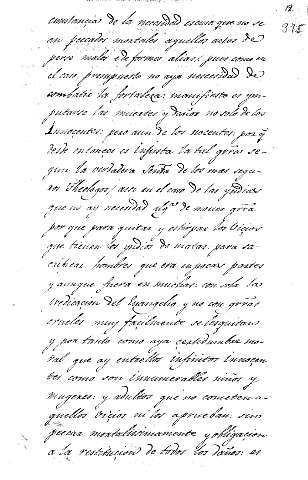 12
395
cunstancia de la necesidad escusa que no se
an peccados mortales aquellos actos de
perse malos e de formes alias; pues como en
el caso presupuesto no aya necesidad de
combatir la fortaleza: manifiesto es ym-
putarse las muertes y daños no solo de los
Innocentes: pero aun de los nocentes, por q̃
desde entonces es Injusta la tal grrã se-
gun la verdadera Sentã de los mas segu-
ros Theologos; assi en el caso de las yndias
que no ay necesidad de mover grrã
por que para quitar y estirpar los Vicios
que tienen los yndios de matar para sa-
crificar hombres que era en pocas partes
y aunque fuera en muchas: con sola la
predicacion del Evangelio y no con grrãs
crueles muy facilmente se les quitan
y por tanto como aya certidumbre mo-
ral que ay entrellos infinitos Inocen-
tes como son innumerables niños y
mugeres: y adultos que no cometen a-
quellos vicios ni los aprueban. sin
peccar mortalissimamente y obligacion
a la restitucion de todos los daños: es